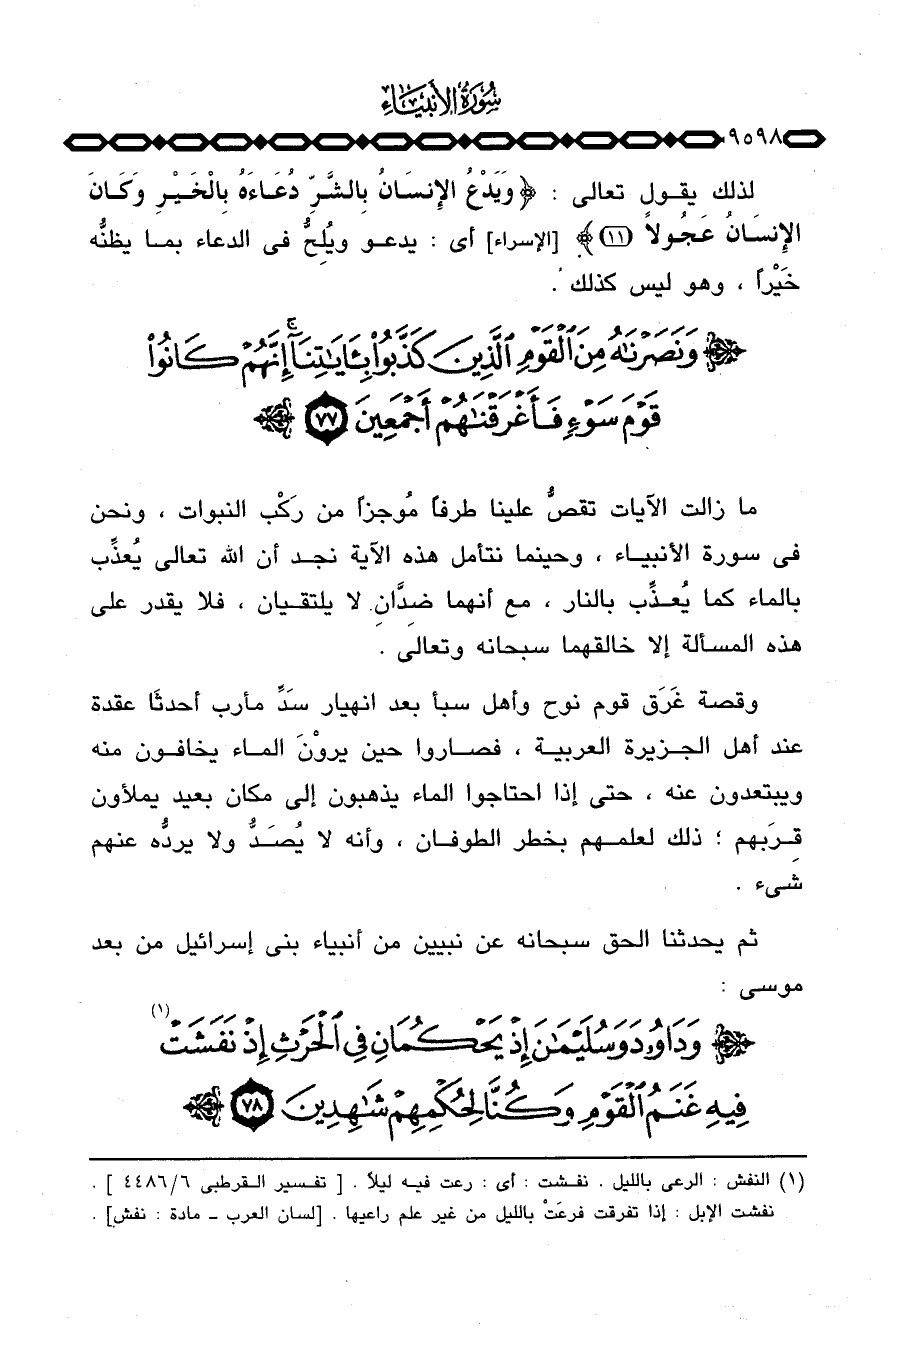 سورة الأنبياء
٩٥٩٨
لذلك يقول تعالى : ﴿ وَيَدْعُ الإِنسَانُ بِالشَّرِّ دُعَاءَهُ بِالْخَيْرِ وَكَانَ
الإِنسَانُ عَجُولاً (١١) ﴾ [الإسراء] أى : يدعو ويُلحُّ فى الدعاء بما يظنُّه
خَيْراً ، وهو ليس كذلك .
﴿ وَنَصَرْنَٰهُ مِنَ ٱلْقَوْمِ ٱلَّذِينَ كَذَّبُوا۟ بِـَٔايَٰتِنَآ ۚ إِنَّهُمْ كَانُوا۟
قَوْمَ سَوْءٍ فَأَغْرَقْنَٰهُمْ أَجْمَعِينَ ٧٧ ﴾
ما زالت الآيات تقصُّ علينا طرفاً مُوجزاً من ركْب النبوات ، ونحن
فى سورة الأنبياء ، وحينما نتأمل هذه الآية نجد أن الله تعالى يُعذِّب
بالماء كما يُعذِّب بالنار ، مع أنهما ضدَّانِ لا يلتقيان ، فلا يقدر على
هذه المسألة إلا خالقهما سبحانه وتعالى .
وقصة غَرَق قوم نوح وأهل سبأ بعد انهيار سَدِّ مأرب أحدثَا عقدة
عند أهل الجزيرة العربية ، فصاروا حين يروْنَ الماء يخافون منه
ويبتعدون عنه ، حتى إذا احتاجوا الماء يذهبون إلى مكان بعيد يملأون
قِرَبهم ؛ ذلك لعلمهم بخطر الطوفان ، وأنه لا يُصَدُّ ولا يردُّه عنهم
شىء .
ثم يحدثنا الحق سبحانه عن نبيين من أنبياء بنى إسرائيل من بعد
موسى :
﴿ وَدَاوُۥدَ وَسُلَيْمَٰنَ إِذْ يَحْكُمَانِ فِى ٱلْحَرْثِ إِذْ نَفَشَتْ (١)
فِيهِ غَنَمُ ٱلْقَوْمِ وَكُنَّا لِحُكْمِهِمْ شَٰهِدِينَ ٧٨ ﴾
(١) النفش : الرعى بالليل . نفشت : أى : رعت فيه ليلاً . [ تفسير القرطبى ٤٤٨٦/٦ ] .
نفشت الإبل : إذا تفرقت فرعَتْ بالليل من غير علم راعيها . [لسان العرب – مادة : نفش] .